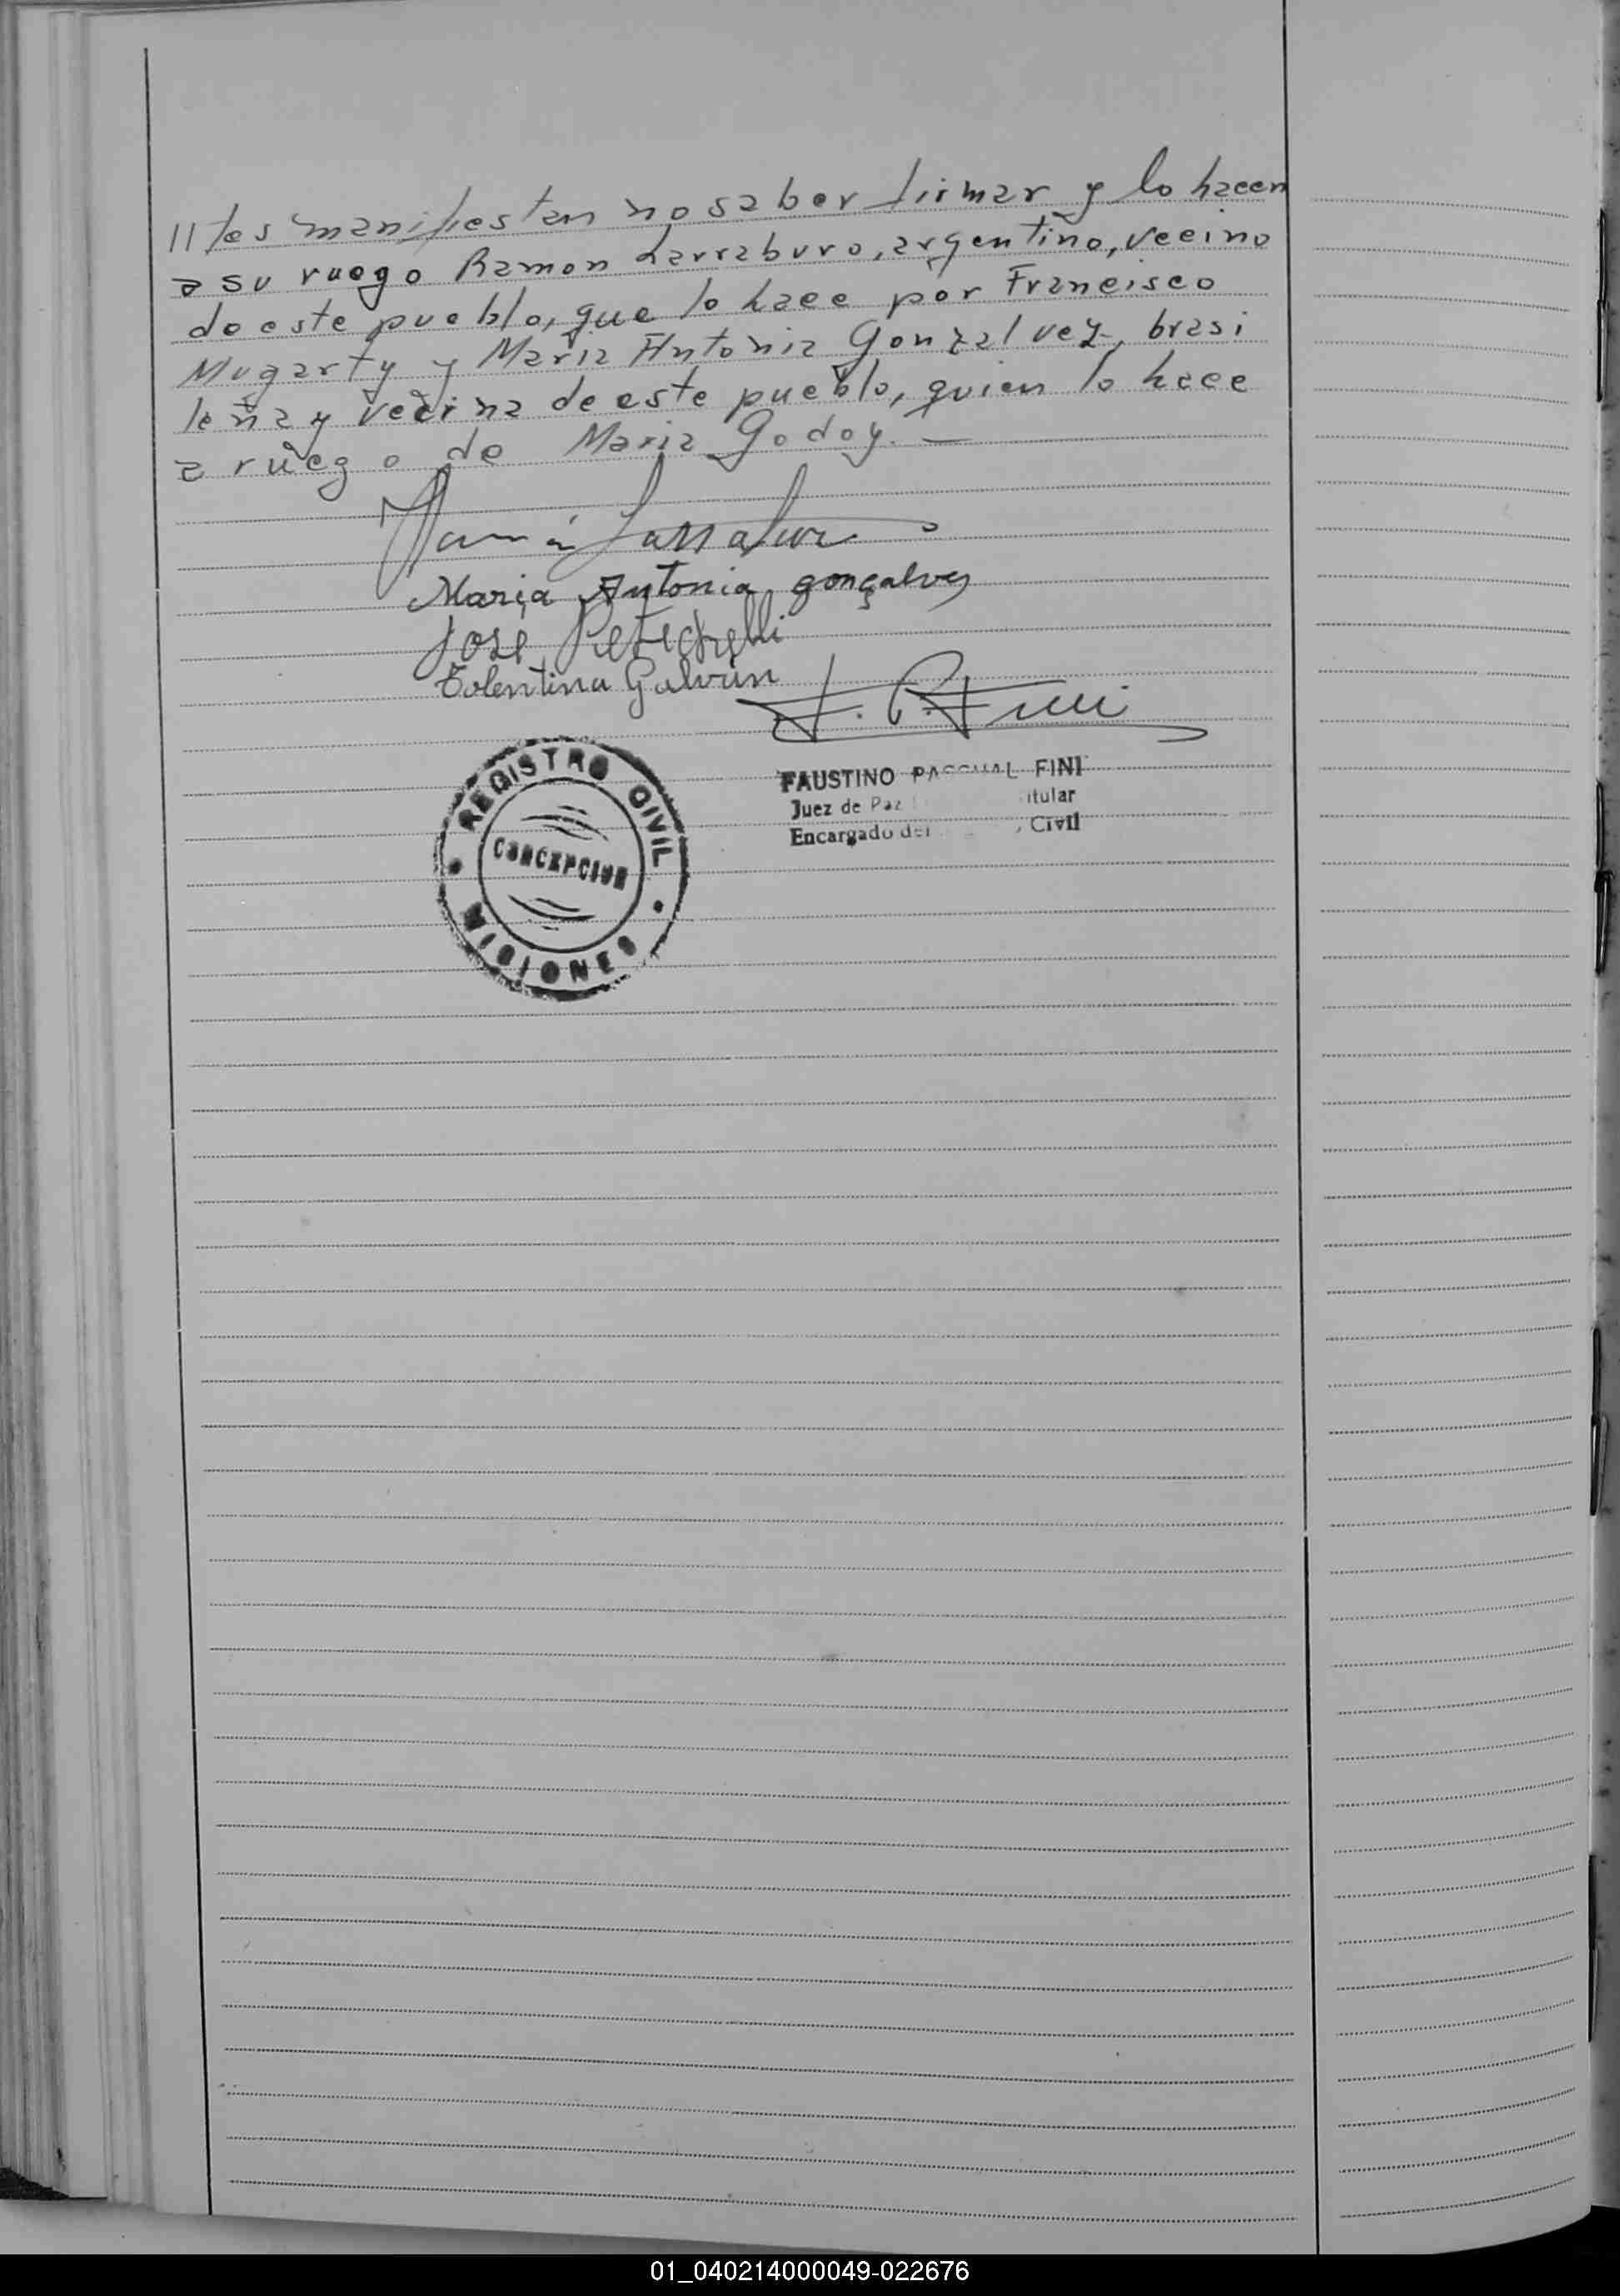 // tes manifiestan no saber firmar y lo hacen
a su ruego Ramon Larraburo, argentino, vecino
de este pueblo, que lo hace por Francisco
Mugarty y Maria Antonia Gonzalvez, brasi
leña y vecina de este pueblo, quien lo hace
a ruego de Maria Godoy. —
Maria Antonia gonçalves
Jose
Tolentina Galván
F. P. Fini
FAUSTINO PASCUAL FINI
Juez de Paz itular
Encargado del Civil
REGISTRO CIVIL
CONCEPCION
MISIONES
01_040214000049-022676